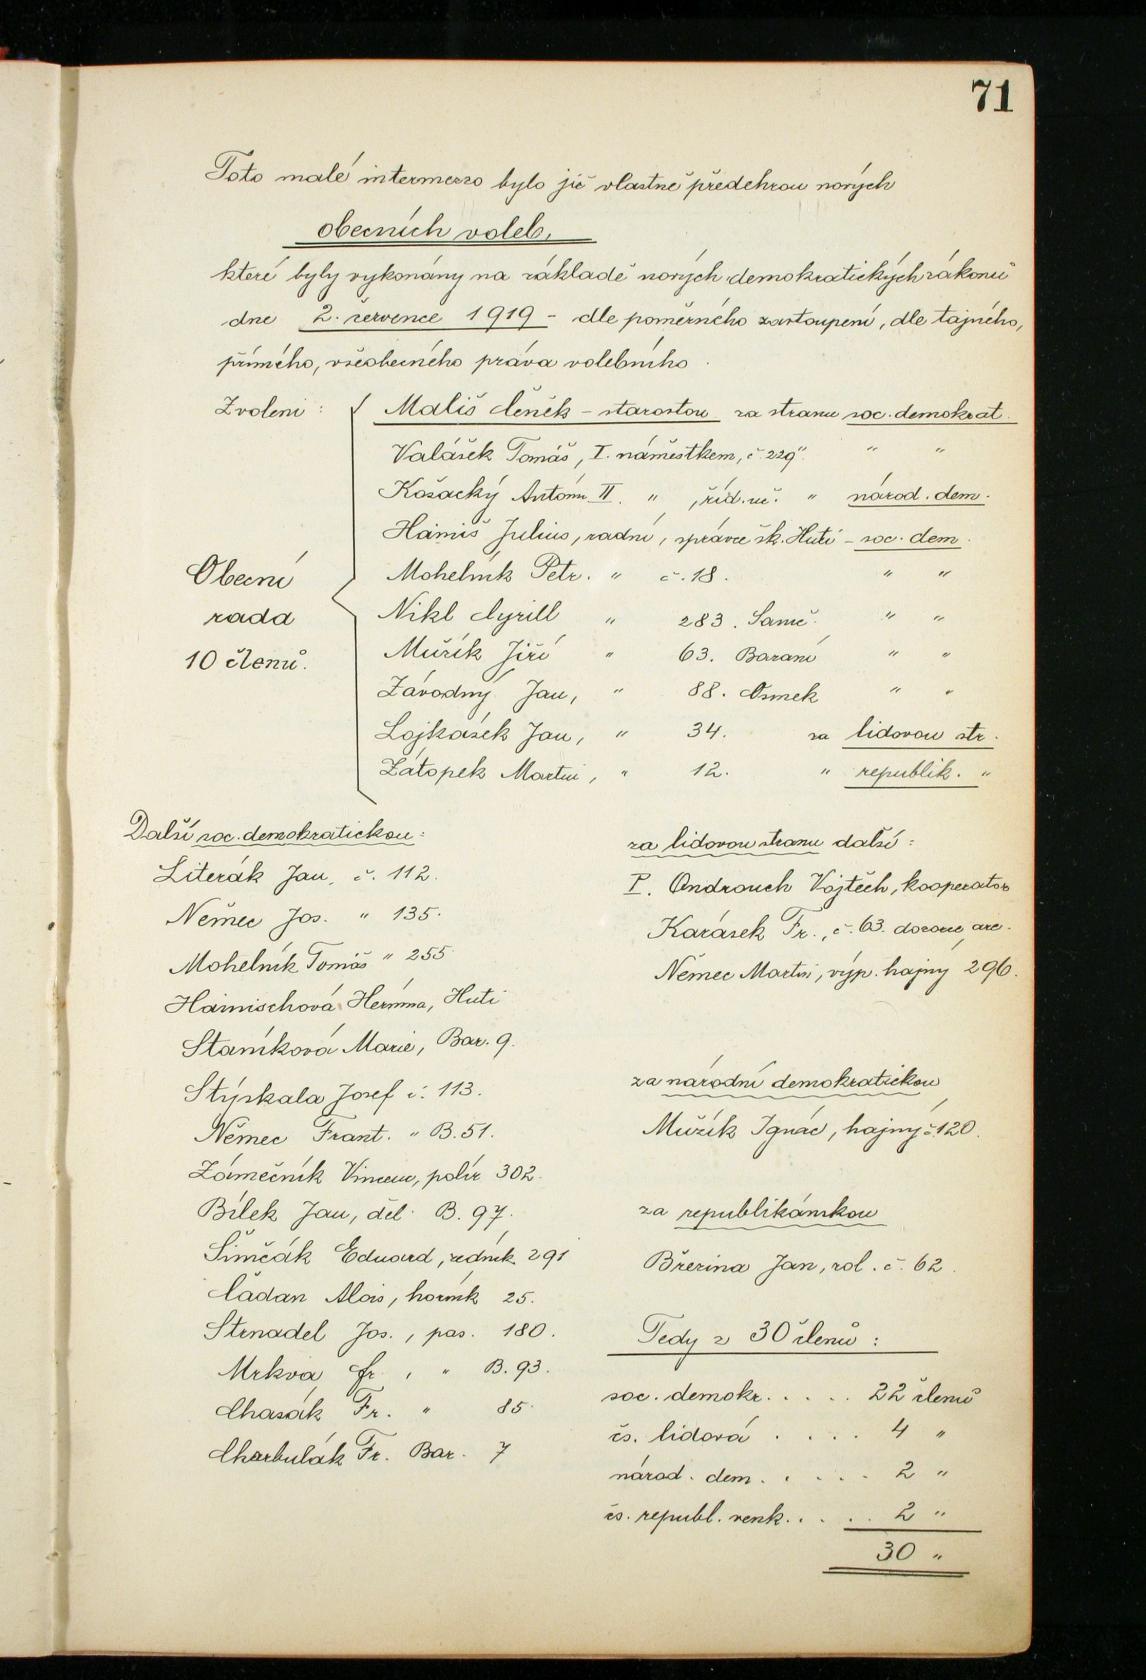 71
Toto malé intermezzo bylo již vlastně předehrou nových
obecních voleb,
které byly vykonány na základě nových demokratických zákonů
dne 2. července 1919 - dle poměrného zastoupení, dle tajného,
přímého, všeobecného práva volebního.
Zvoleni : Mališ Čeněk - starostou za stranu soc. demokrat.
Valášek Tomáš, I. náměstkem, č. 229 " " "
Košacký Antonín II. " , říd. uč. " národ. dem.
Hainiš Julius, radní, správce šk. Huti - soc. dem.
Obecní
rada
10 členů.
Mohelník Petr. " č. 18. " "
Nikl Cyrill " 283. " "
Mužík Jiří " 63. Baraní " "
Závodný Jan, " 88. Osmek " "
Lojkásek Jan, " 34. za lidovou str.
Zátopek Martin, " 12. " republik. "
Další soc. demokratickou:
Literák Jan, č. 112.
Němec Jos. " 135.
Mohelník Tomáš " 255
Hainischová Hermína, Huti
Staníková Marie, Bar. 9.
Stýskala Josef č. 113.
Němec Frant. " B. 51.
Zámečník Vincenc, polír 302.
Bílek Jan, děl. B. 97.
Šimčák Eduard, zedník 291
Čádan Alois, horník 25.
Strnadel Jos., pas. 180.
Mrkva fr. , " B. 93.
Chasák Fr. " 85.
Charbulák Fr. Bar. 7
za lidovou stranu další :
P. Ondrouch Vojtěch, kooperator
Karásek Fr., č. 63. dozorce arc.
Němec Martin, výp. hajný 296.
za národní demokratickou
Mužík Ignác, hajný č. 120.
za republikánskou
Březina Jan, rol. č. 62.
Tedy z 30 členů :
soc. demokr. . . . . 22 členů
čs. lidová . . . . 4 "
národ. dem. . . . . 2 "
čs. republ. venk. . . . . 2 "
30 "